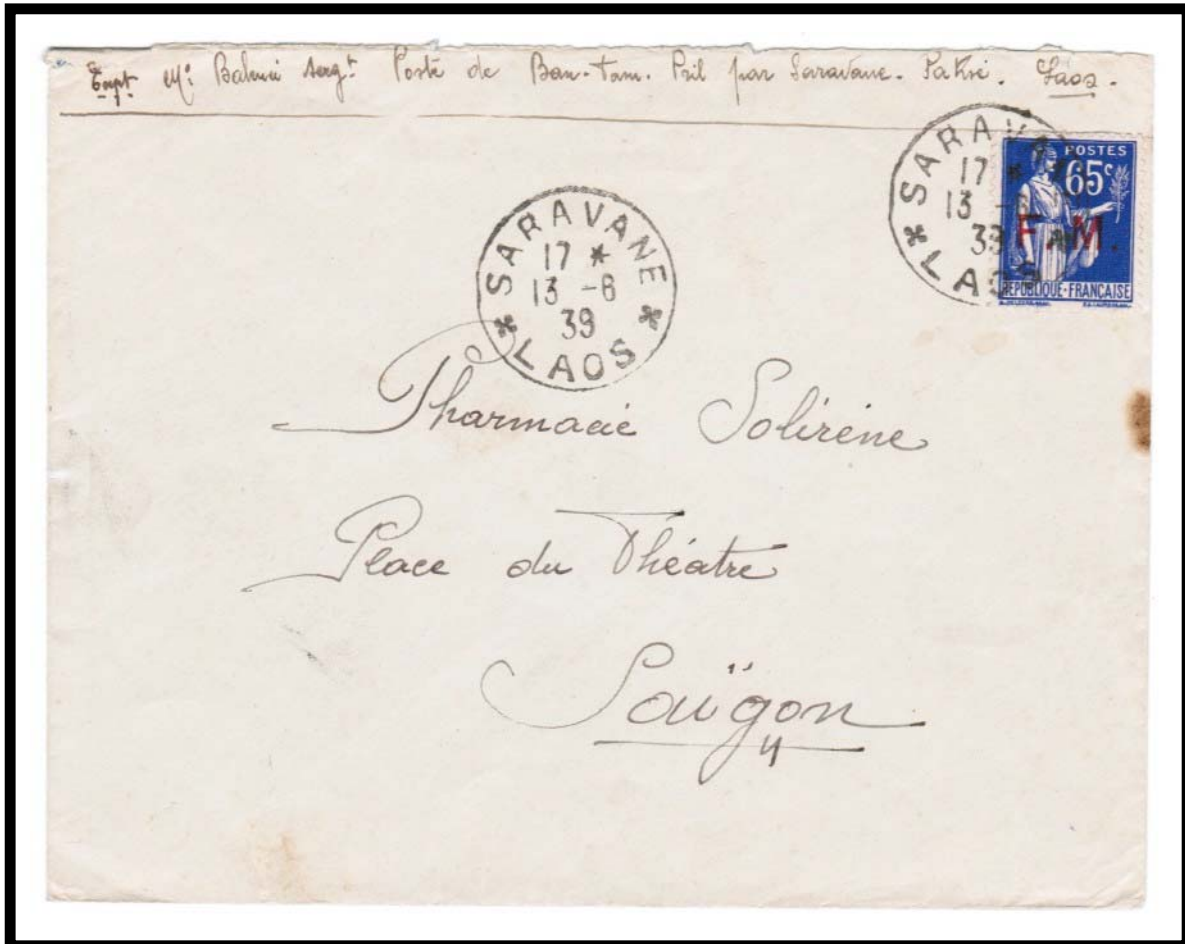 Expt Mr Sergt Poste de Ban-Tam. Pril par Saravane. Pakse. Laos.
SARAVANE
17 *
13 -6
39
* LAOS *
SARAVANE
17 *
13 -6
39
* LAOS
POSTES
65c
F. M.
REPUBLIQUE·FRANÇAISE
Pharmacie Solirène
Place du Théâtre
Saïgon